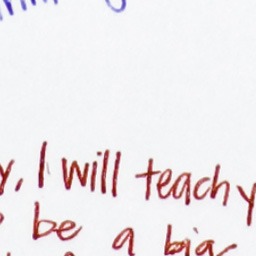 y, I will teach y
be a big